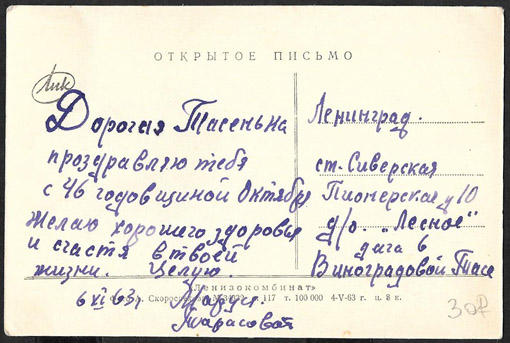 ОТКРЫТОЕ ПИСЬМО
Дорогая Тасенька
проздравляю тебя
с 46 годовщиной Октября
Желаю хорошего здоровья
и счастя в твоей
жизни. Целую.
6 XI 63г
Тарасовой
Ленинград.
ст. Сиверская
Пионерская у 10
д/о. „Лесное"
дача 6
Виноградовой Тасе
«Ленизокомбинат»
т. 100 000 4-V-63 г. ц. 3 к.
30р